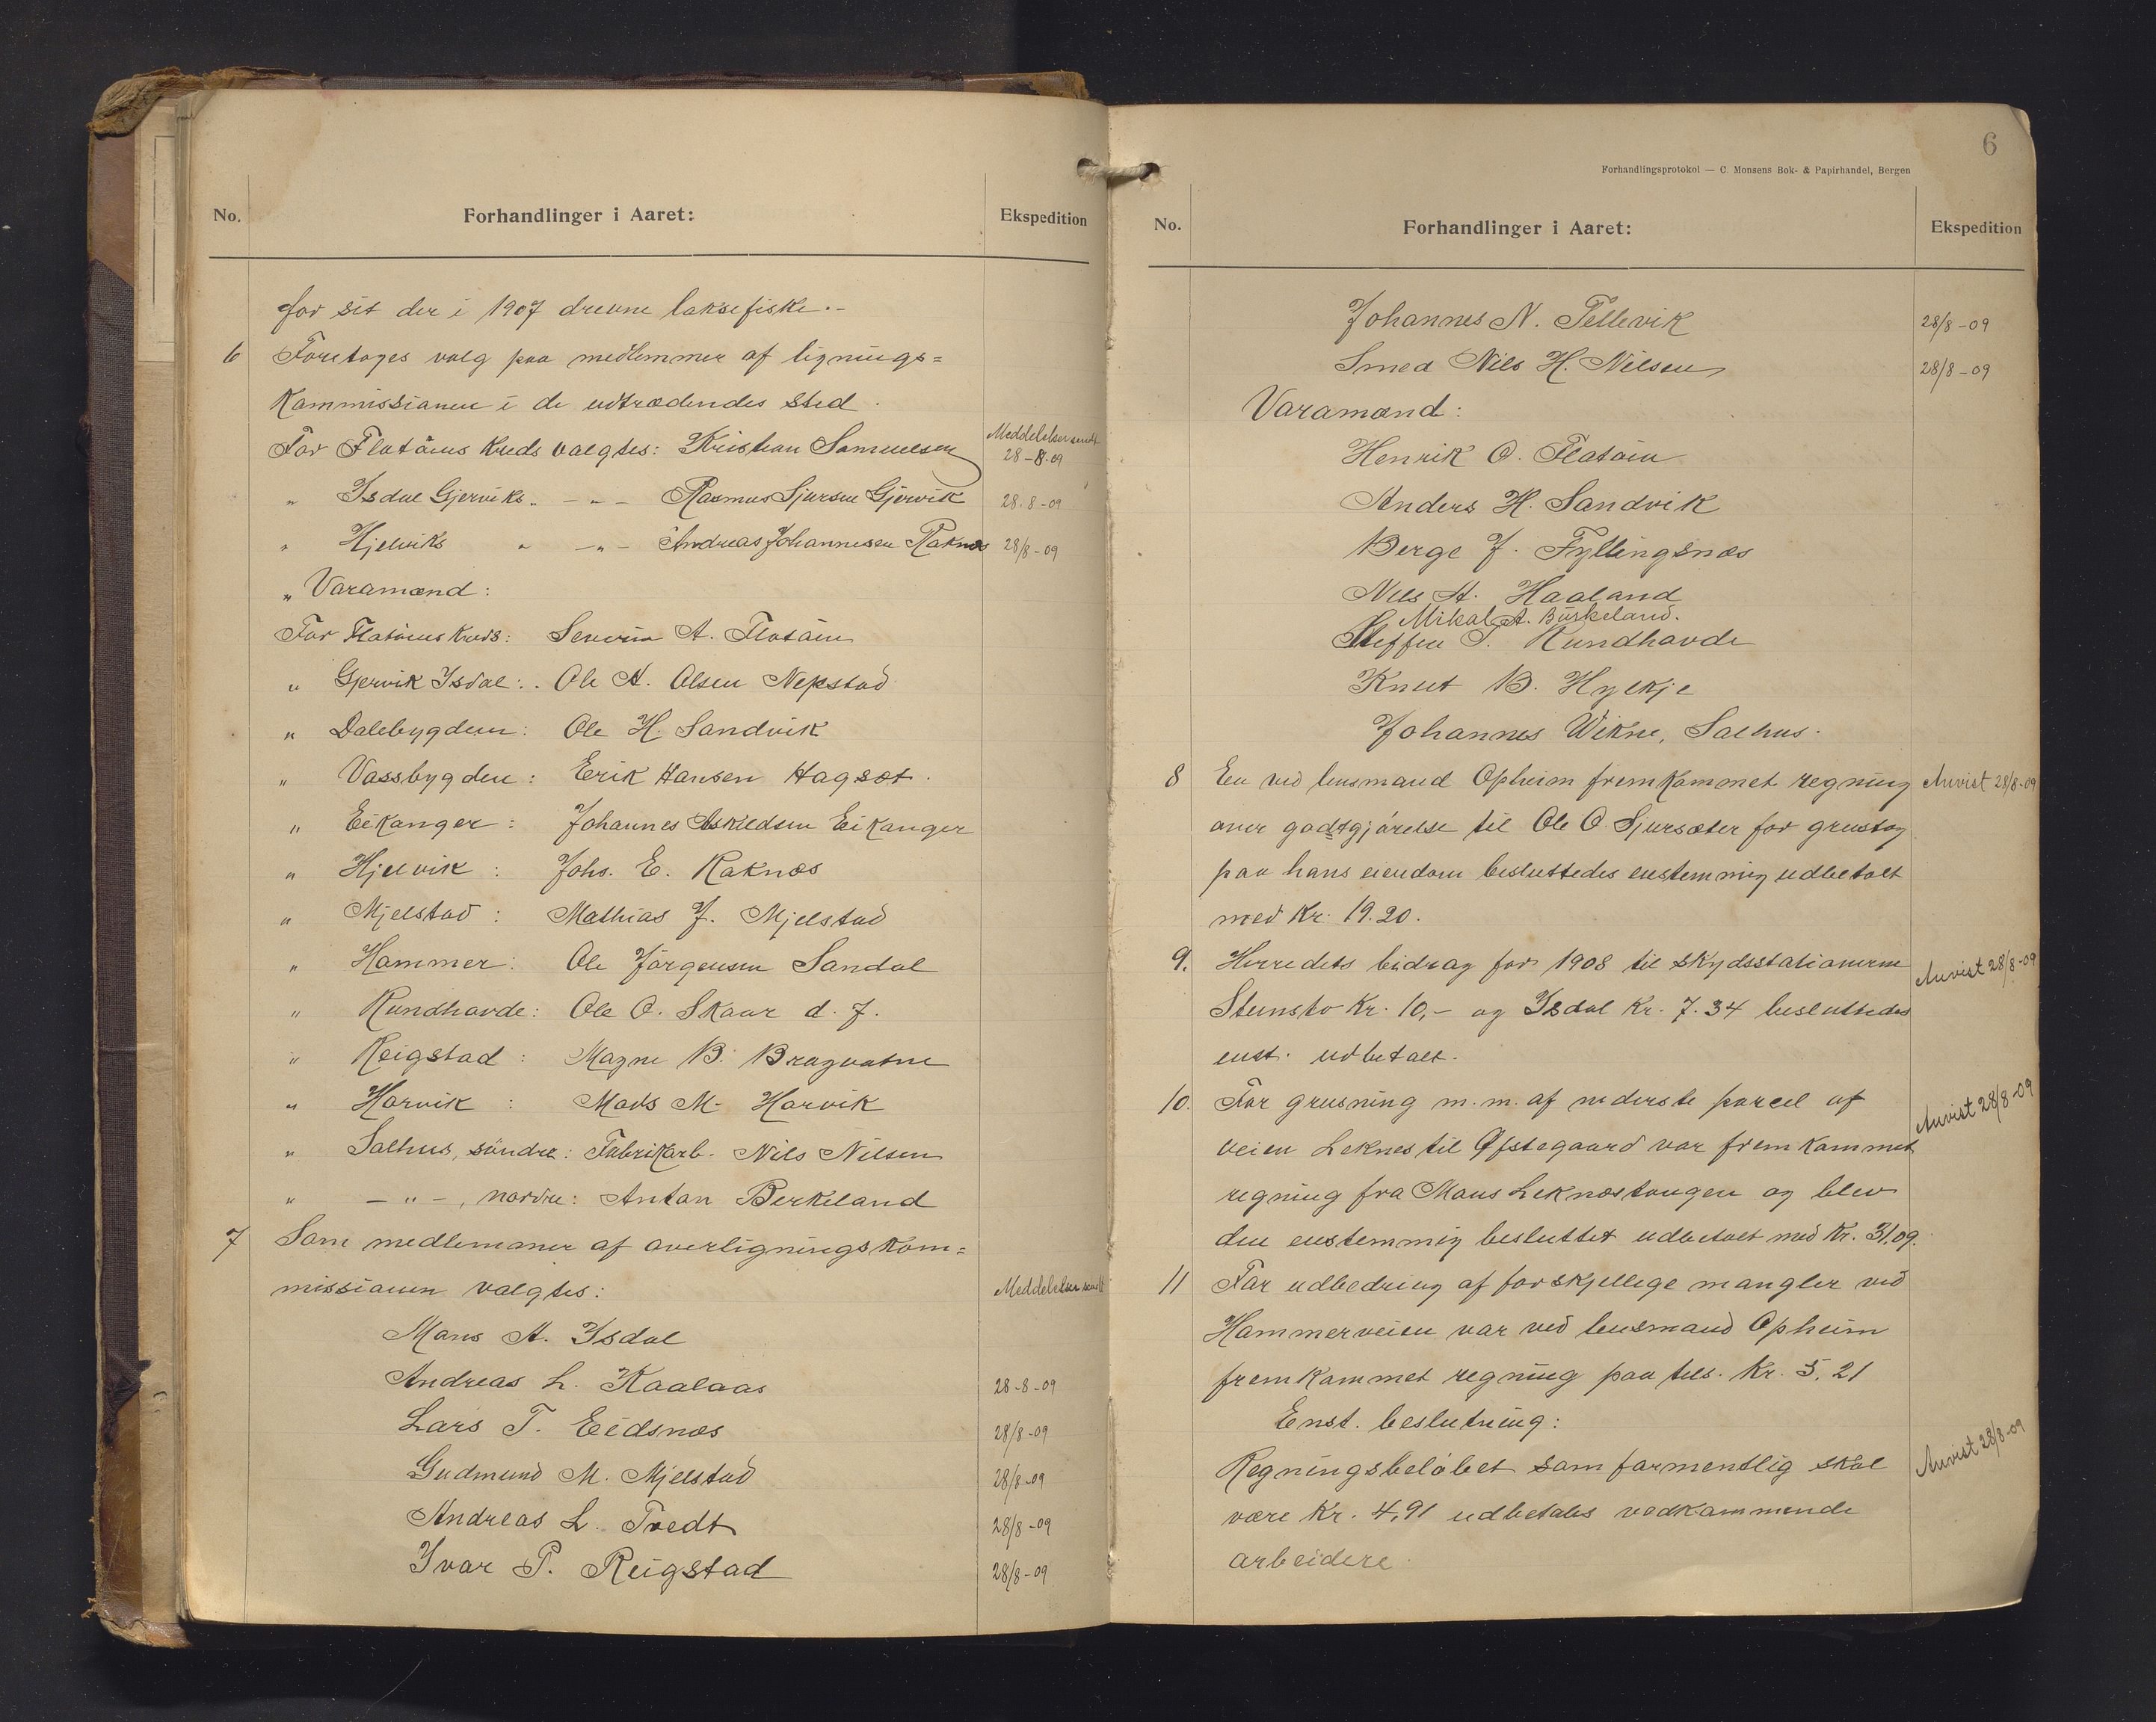 No. Forhandlinger i Aaret: Ekspedition
for sit der i 1907 drevne laksefiske.-
6 Foretoges valg paa medlemmer af lignings=
kommissionen i de udtrædendes sted.
For Flatöens kreds valgtes: Kristian Samuelsen Meddelelser sendt 28-8-09
" Isdal Gjerviks " - " - Rasmus Sjursen Gjervik 28.8-09
" Hjelviks " - " - Andreas Johannesen Raknes 28/8-09
" Varamænd:
For Flatöens kreds: Severin A. Flatöen
" Gjervik Isdal: Ole A. Olsen Nepstad
" Dalebygden: Ole H. Sandvik
" Vassbygden: Erik Hansen Hagsæt.
" Eikanger: Johannes Askildsen Eikanger
" Hjelvik: Johs. E. Raknæs
" Mjelstad: Mathias J. Mjelstad
" Hammer: Ole Jörgensen Sandal
" Rundhovde: Ole O. Skaar d. j.
" Reigstad: Magne B. Bragvatne
" Horvik: Mads M. Horvik
" Salhus, söndre: Fabrikarb. Nils Nilsen
" - " -, nordre: Anton Berkeland
7 Som medlemmer af overligningskom=
missionen valgtes: Meddelelser sendt
Mons A. Isdal
Andreas L. Kaalaas 28-8-09
Lars T. Eidsnæs 28/8-09
Gudmund M. Mjelstad 28/8-09
Andreas L. Tvedt 28/8-09
Ivar P. Reigstad 28/8-09
6
Forhandlingsprotokol — C. Monsens Bok- & Papirhandel, Bergen
No. Forhandlinger i Aaret: Ekspedition
Johannes N. Tellevik 28/8-09
Smed Nils H. Nilsen 28/8-09
Varamænd:
Henrik O. Flatöen
Anders H. Sandvik
Berge J. Fyllingsnæs
Nils A. Haaland
Mikal A. Birkeland.
Steffen T. Rundhovde
Knut B. Hylkje
Johannes Wikne, Salhus.
8 En ved lensmand Opheim fremkommet regning Anvist 28/8-09
over godtgjörelse til Ole O. Sjursæter for grustag
paa hans eiendom besluttedes enstemmig udbetalt
med Kr. 19.20.
9. Herredets bidrag for 1908 til skydsstationerne Anvist 28/8-09
Stunsto Kr. 10,- og Isdal Kr. 7.34 besluttedes
enst. udbetalt.
10. For grusning m.m. af nederste parcel af Anvist 28/8-09
veien Leknes til Øfstegaard var fremkommet
regning fra Mons Leknæstangen og blev
den enstemmig besluttet udbetalt med Kr. 31,09.
11 For udbedring af forskjellige mangler ved
Hammerveien var ved lensmand Opheim
fremkommet regning paa tils. Kr. 5,21
Enst. beslutning:
Regningsbelöbet som formentlig skal Anvist 28/8-09
være Kr. 4,91 udbetales vedkommende
arbeidere.